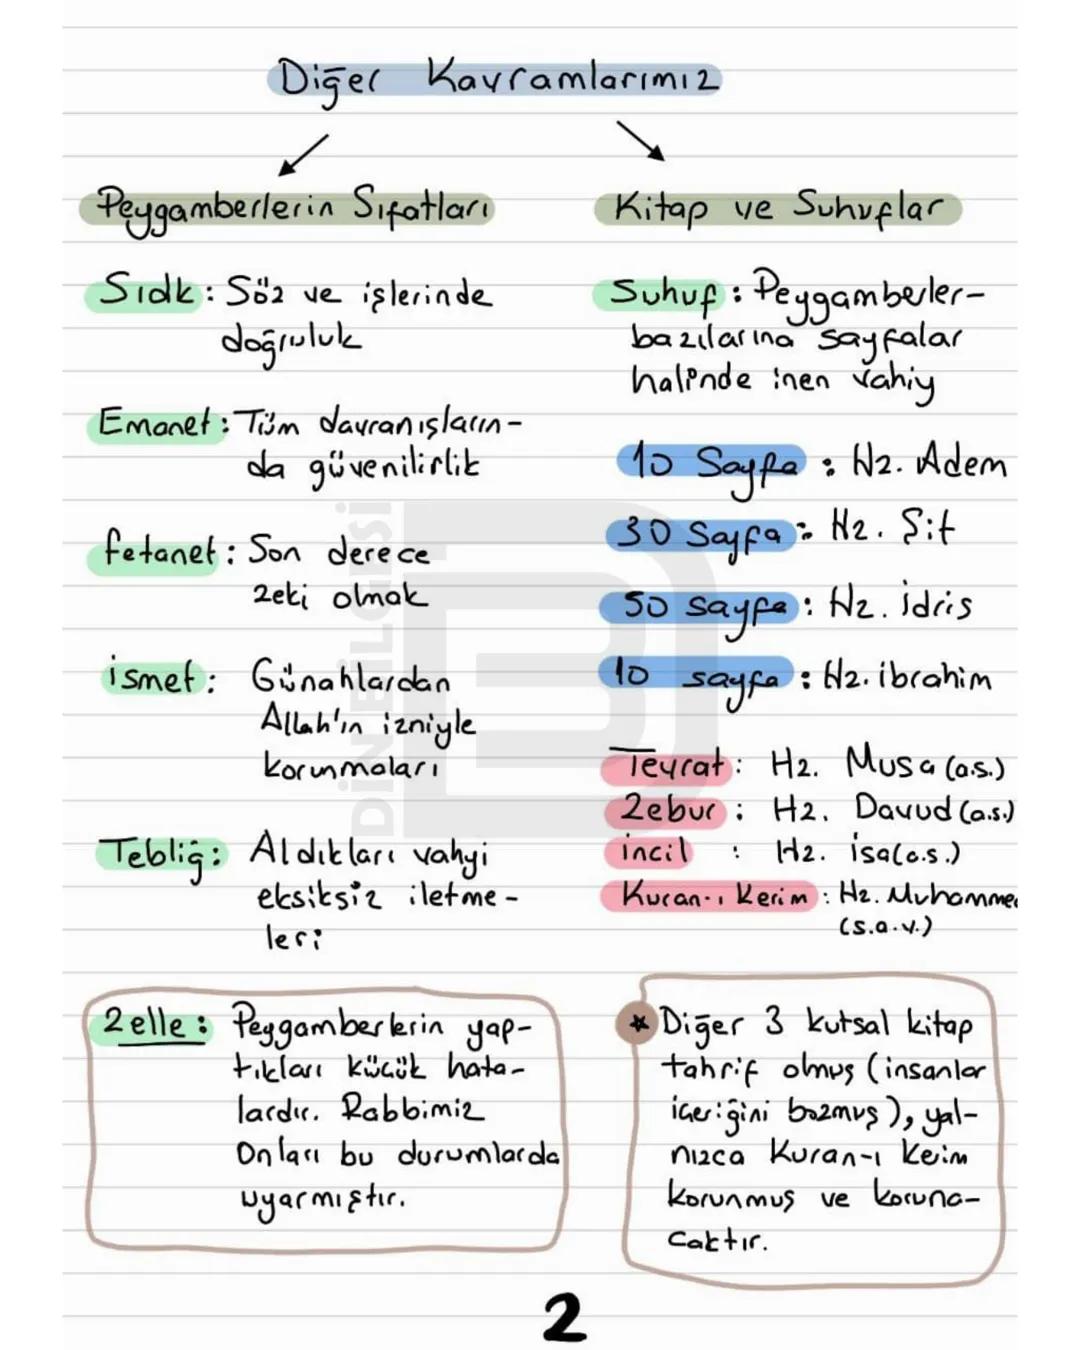 Diğer Kavramlarımız
Peygamberlerin Sıfatları
Sıdk: Söz ve işlerinde
doğruluk
Emanet: Tüm davranışların-
da güvenilirlik
fetanet: Son derece
zeki olmak
ismet: Günahlardan
Allah'ın izniyle
korunmaları
Tebliğ: Aldıkları vahyi
eksiksiz iletme-
leri
Zelle: Peygamberlerin yap-
tıkları küçük hata-
lardır. Rabbimiz
Onları bu durumlarda
uyarmıştır.
Kitap ve Suhuflar
Suhuf: Peygamberler-
bazılarına sayfalar
halinde inen vahiy
10 Sayfa: Hz. Adem
30 Sayfa: Hz. Şit
50 sayfa: Hz. idris
10 sayfa: Hz. ibrahim
Tevrat: Hz. Musa (a.s.)
Zebur: Hz. Davud (a.s.)
incil : Hz. İsa (a.s.)
Kuran-ı Kerim: Hz. Muhamme
(s.a.v.)
* Diğer 3 kutsal kitap
tahrif olmuş (insanlar
içeriğini bozmuş), yal-
nızca Kuran-ı Kerim
korunmuş ve koruna-
caktır.
DİN BİLGİSİ
2